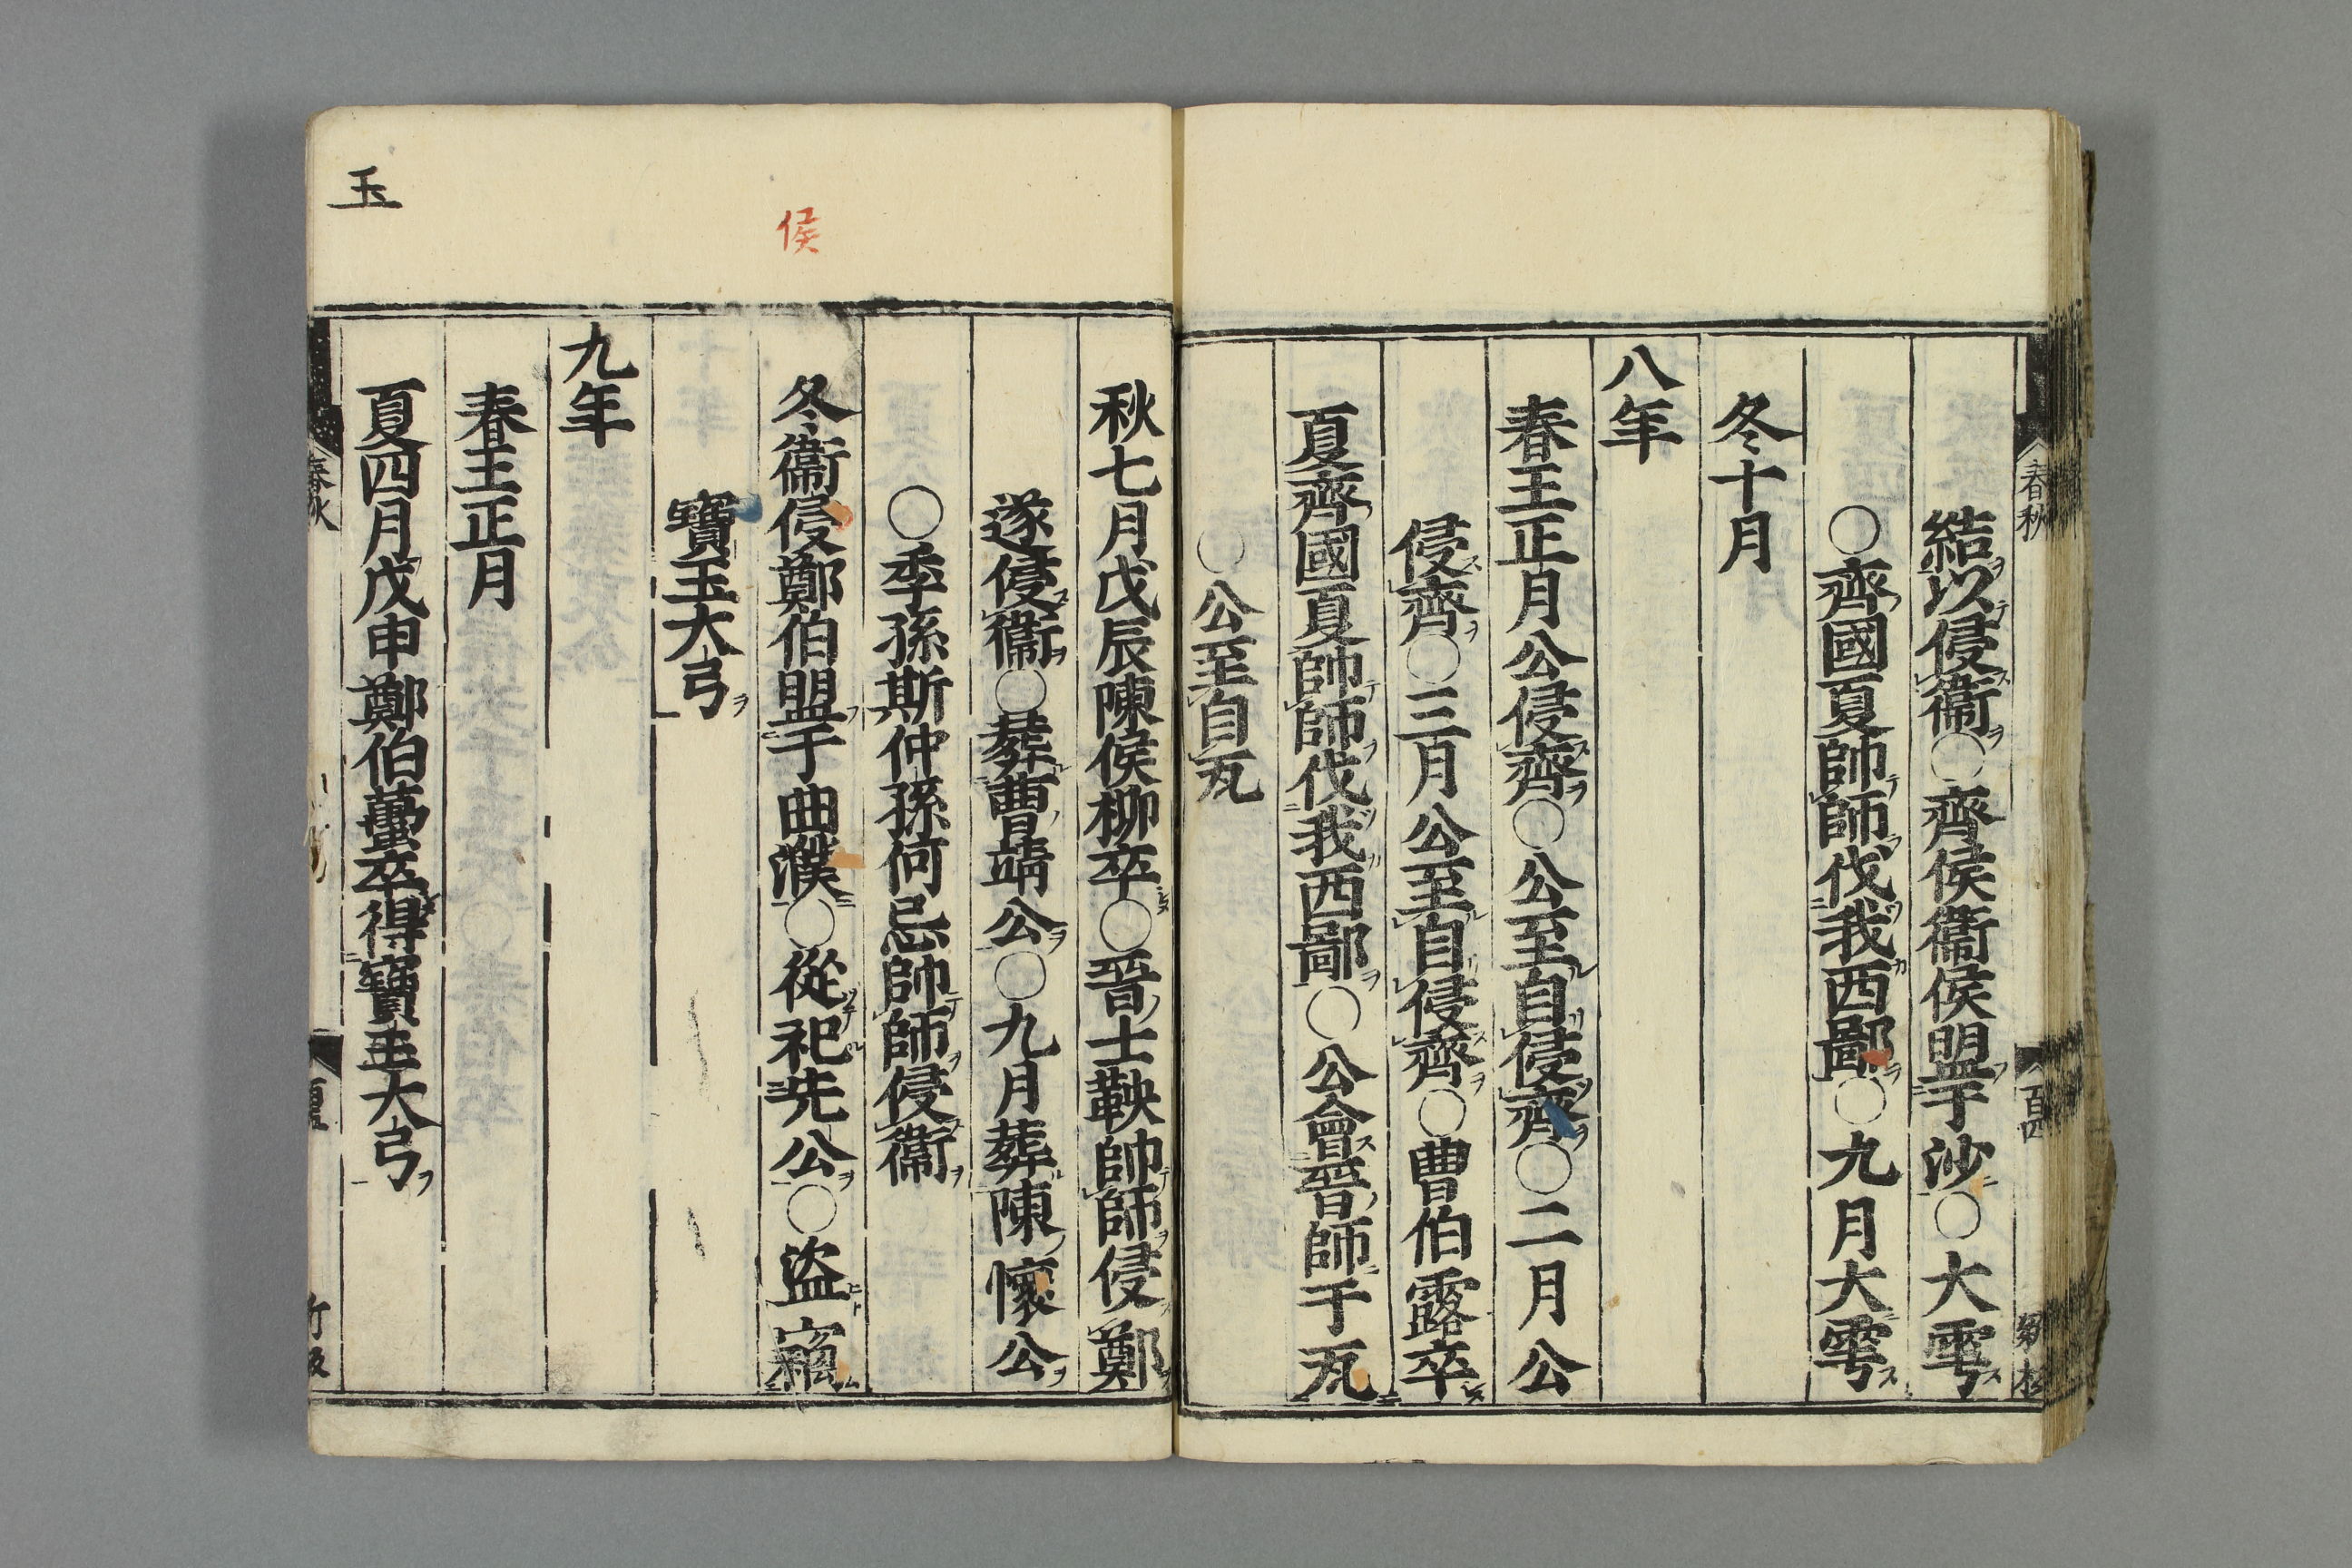 春秋
百四
結以侵衞○齊侯衞侯盟于沙○大雩
○齊國夏帥師伐我西鄙○九月大雩
冬十月
八年
春王正月公侵齊○公至自侵齊○二月公
侵齊○三月公至自侵齊○曹伯露卒
夏齊國夏帥師伐我西鄙○公會晉師于瓦
○公至自瓦
秋七月戊辰陳侯柳卒○晉士鞅帥師侵鄭
遂侵衞○葬曹靖公○九月葬陳懷公
○季孫斯仲孫何忌帥師侵衞
侯
冬衞侵鄭伯盟于曲濮○從祀先公○盜竊
寶玉大弓
九年
春王正月
玉
夏四月戊申鄭伯蠆卒得寶王大弓
春秋